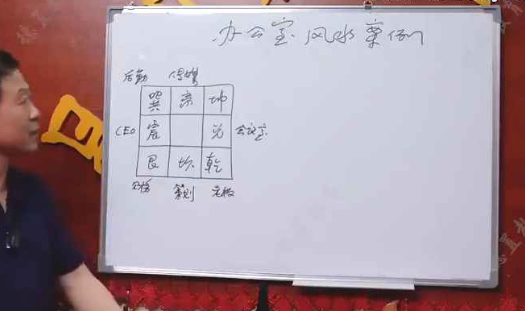 办公室风水案例
后勤
巽 离 坤
CEO 震 兑 会议室
艮 坎 乾
策划 老板